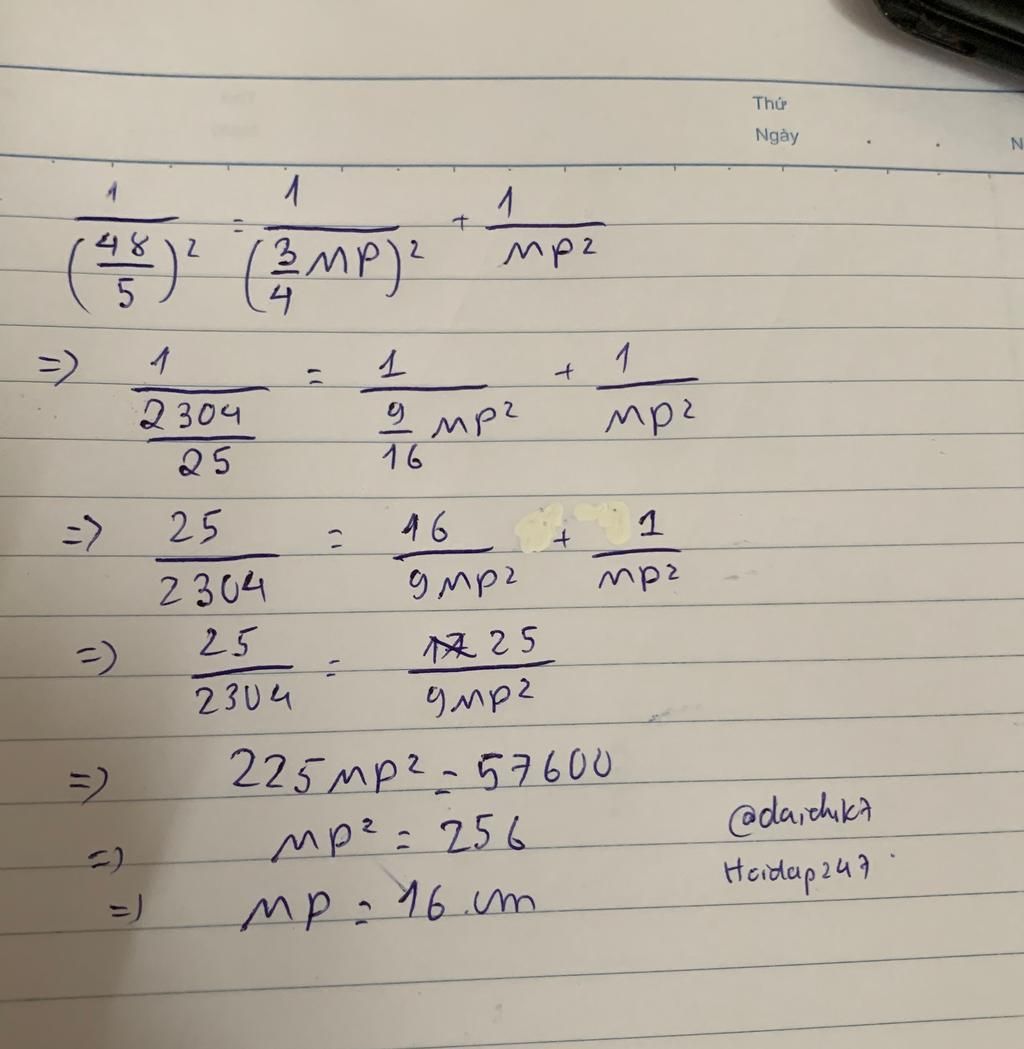 Thứ
Ngày
N
1/(48/5)² = 1/(3/4 MP)² + 1/MP²
=> 1/(2304/25) = 1/(9/16 MP²) + 1/MP²
=> 25/2304 = 16/9MP² + 1/MP²
=> 25/2304 = 25/9MP²
=> 225MP² = 57600
=> MP² = 256
=> MP = 16 cm
@daichik7
Hoidap247